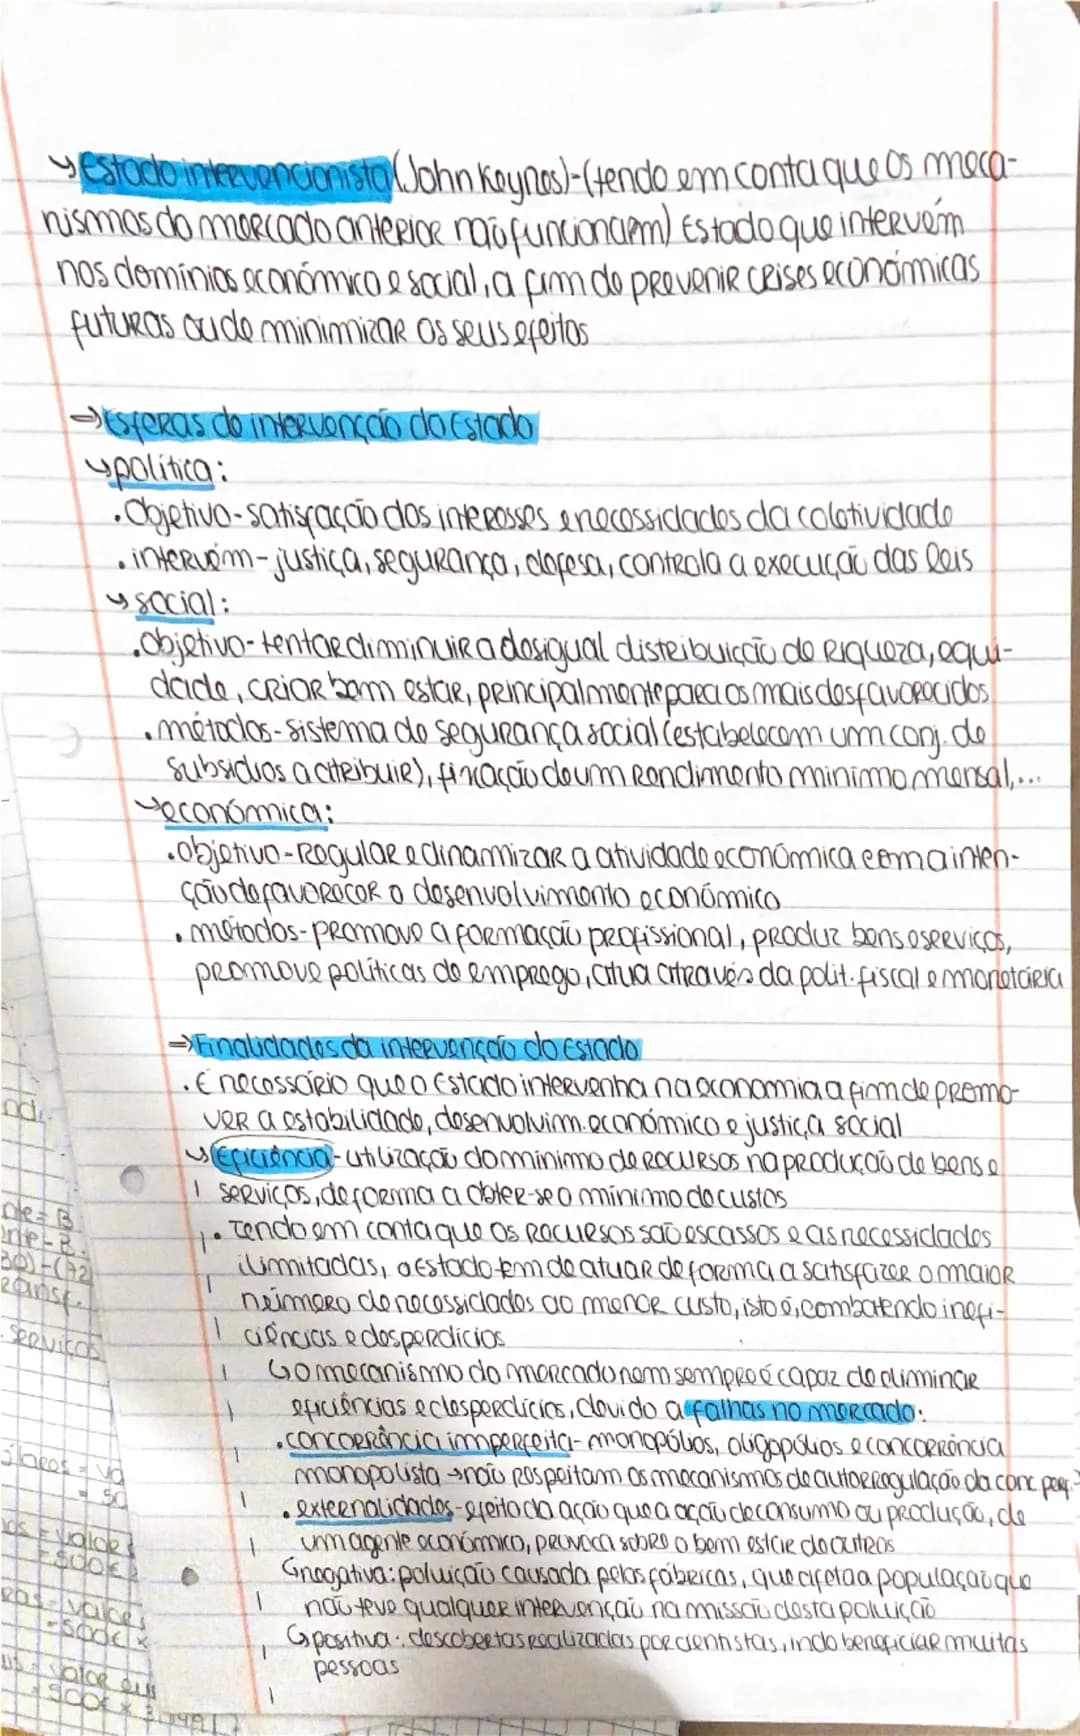 ↳Estado intervencionista (John Keynes)-(tendo em conta que os meca-
nismos do mercado anterior não funcionam) Estado que intervém
nos domínios económico e social, a fim de prevenir crises económicas
futuras ou de minimizar os seus efeitos
⇒Esferas de intervenção do Estado
↳política:
.Objetivo-satisfação dos interesses e necessidades da coletividade
.intervém-justiça, segurança, defesa, controla a execução das leis
↳social:
.objetivo-tentar diminuir a desigual distribuição de riqueza, equi-
dade, criar bem estar, principalmente para os mais desfavorecidos
.métodos-sistema de segurança social (estabelecem um conj. de
subsidios a atribuir), fixação de um rendimento minimo mensal,...
↳económica:
.objetivo-regular e dinamizar a atividade económica com a inten-
ção de favorecer o desenvolvimento económico
.métodos-promove a formação profissional, produz bens e serviços,
promove políticas de emprego, atua através da polit. fiscal e monetária
⇒Finalidades da intervenção do Estado
.É necessário que o Estado intervenha na economia a fim de promo-
ver a estabilidade, desenvolvim. económico e justiça social
↳Eficiência-utilização do minimo de recursos na produção de bens e
serviços, de forma a obter-se o mínimo de custos
.Tendo em conta que os recursos são escassos e as necessidades
ilimitadas, o Estado tem de atuar de forma a satisfazer o maior
número de necessidades ao menor custo, isto é, combatendo inefi-
ciências e desperdicios
↳o mecanismo do mercado nem sempre é capaz de eliminar
eficiências e desperdícios, devido a falhas no mercado:
.concorrência imperfeita-monopólios, oligopólios e concorrência
monopolista →não respeitam os mecanismos de autorregulação da conc. perf.
.externalidades-efeito da ação que a ação de consumo ou produção, de
um agente económico, provoca sobre o bem estar de outros
↳negativa: poluição causada pelas fábricas, que afeta a população que
não teve qualquer intervenção na missão desta poluição
↳positiva: descobertas realizadas por cientistas, indo beneficiar muitas
pessoas
serviços